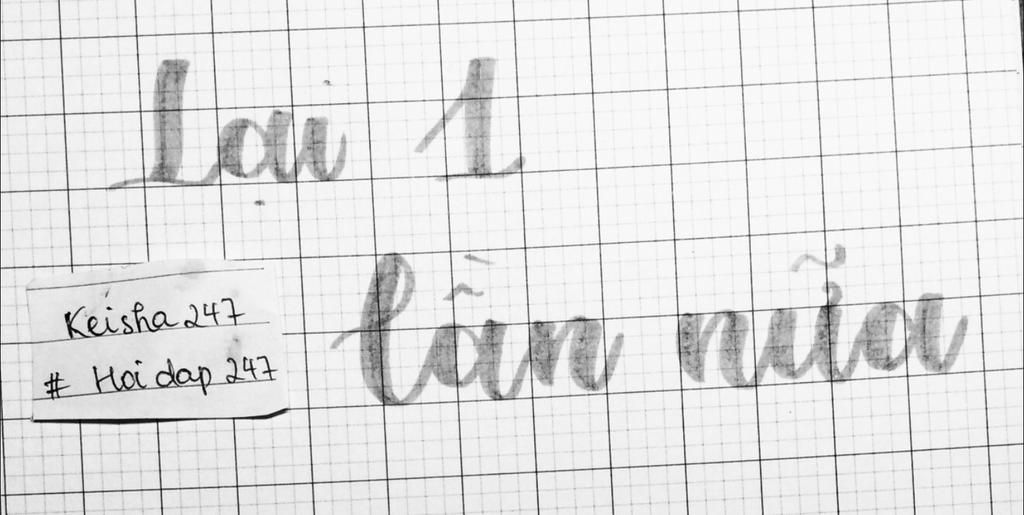 Lại 1
lần nữa
Keisha 247
# Hoi dap 247